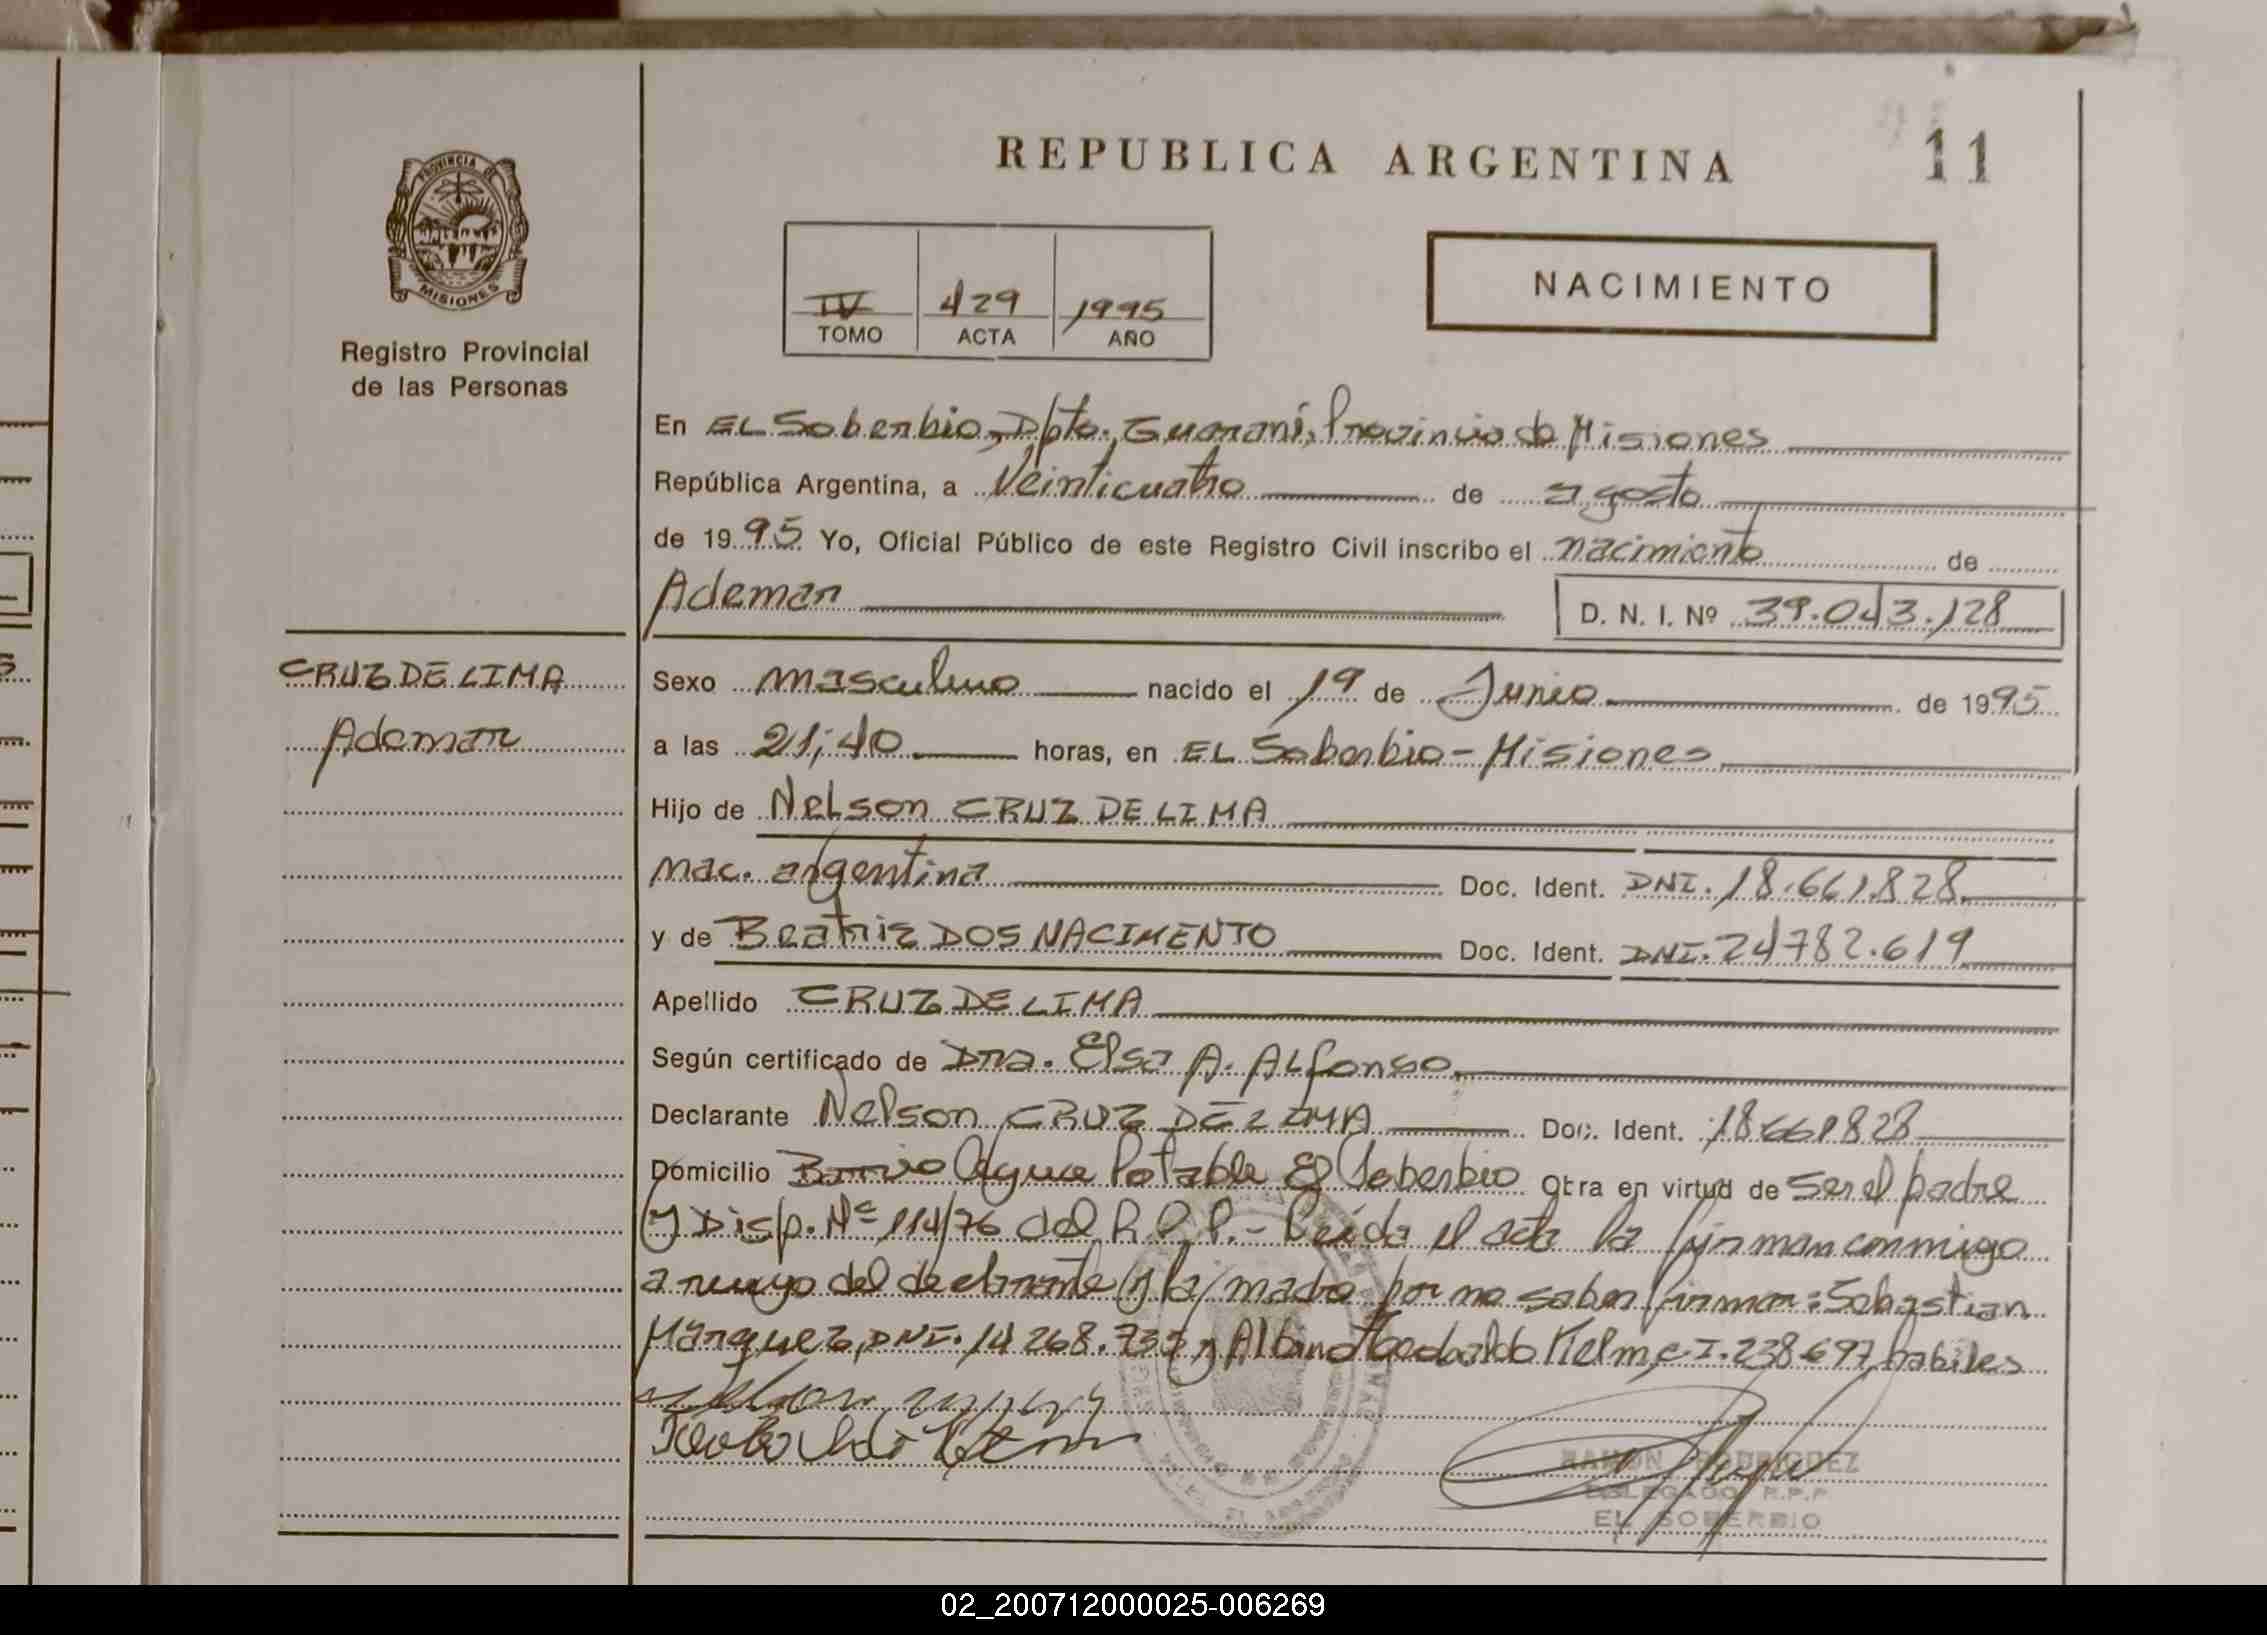 REPUBLICA ARGENTINA
11
PROVINCIA DE
MISIONES
Registro Provincial
de las Personas
IV 429 1995
TOMO ACTA AÑO
NACIMIENTO
En EL Soberbio, Dpto. Guaraní, Provincia de Misiones
República Argentina, a Veinticuatro de agosto
de 1995 Yo, Oficial Público de este Registro Civil inscribo el nacimiento de
Ademar D. N. I. Nº 39.043.128
CRUZ DE LIMA
Ademar
Sexo masculino nacido el 19 de Junio de 1995
a las 21;40 horas, en EL Soberbio - Misiones
Hijo de Nelson CRUZ DE LIMA
nac. argentina Doc. Ident. DNI. 18.661.828
y de Beatriz DOS NACIMENTO Doc. Ident. DNI. 24782.619
Apellido CRUZ DE LIMA
Según certificado de Dra. Elsa A. Alfonso
Declarante Nelson CRUZ DE LIMA Doc. Ident. 18661828
Domicilio Barrio Agua Potable El Soberbio Otra en virtud de ser el padre
y Disp. Nº 114/76 del R.P.P.- Leída el acta la firman conmigo
a ruego del declarante y la madre por no saber firmar: Sebastian
Marquez, DNI. 14 268.735 y Albino Teobaldo Kelm, C.I. 238.697, habiles
RAMON RODRIGUEZ
DELEGADO R.P.P.
EL SOBERBIO
02_200712000025-006269